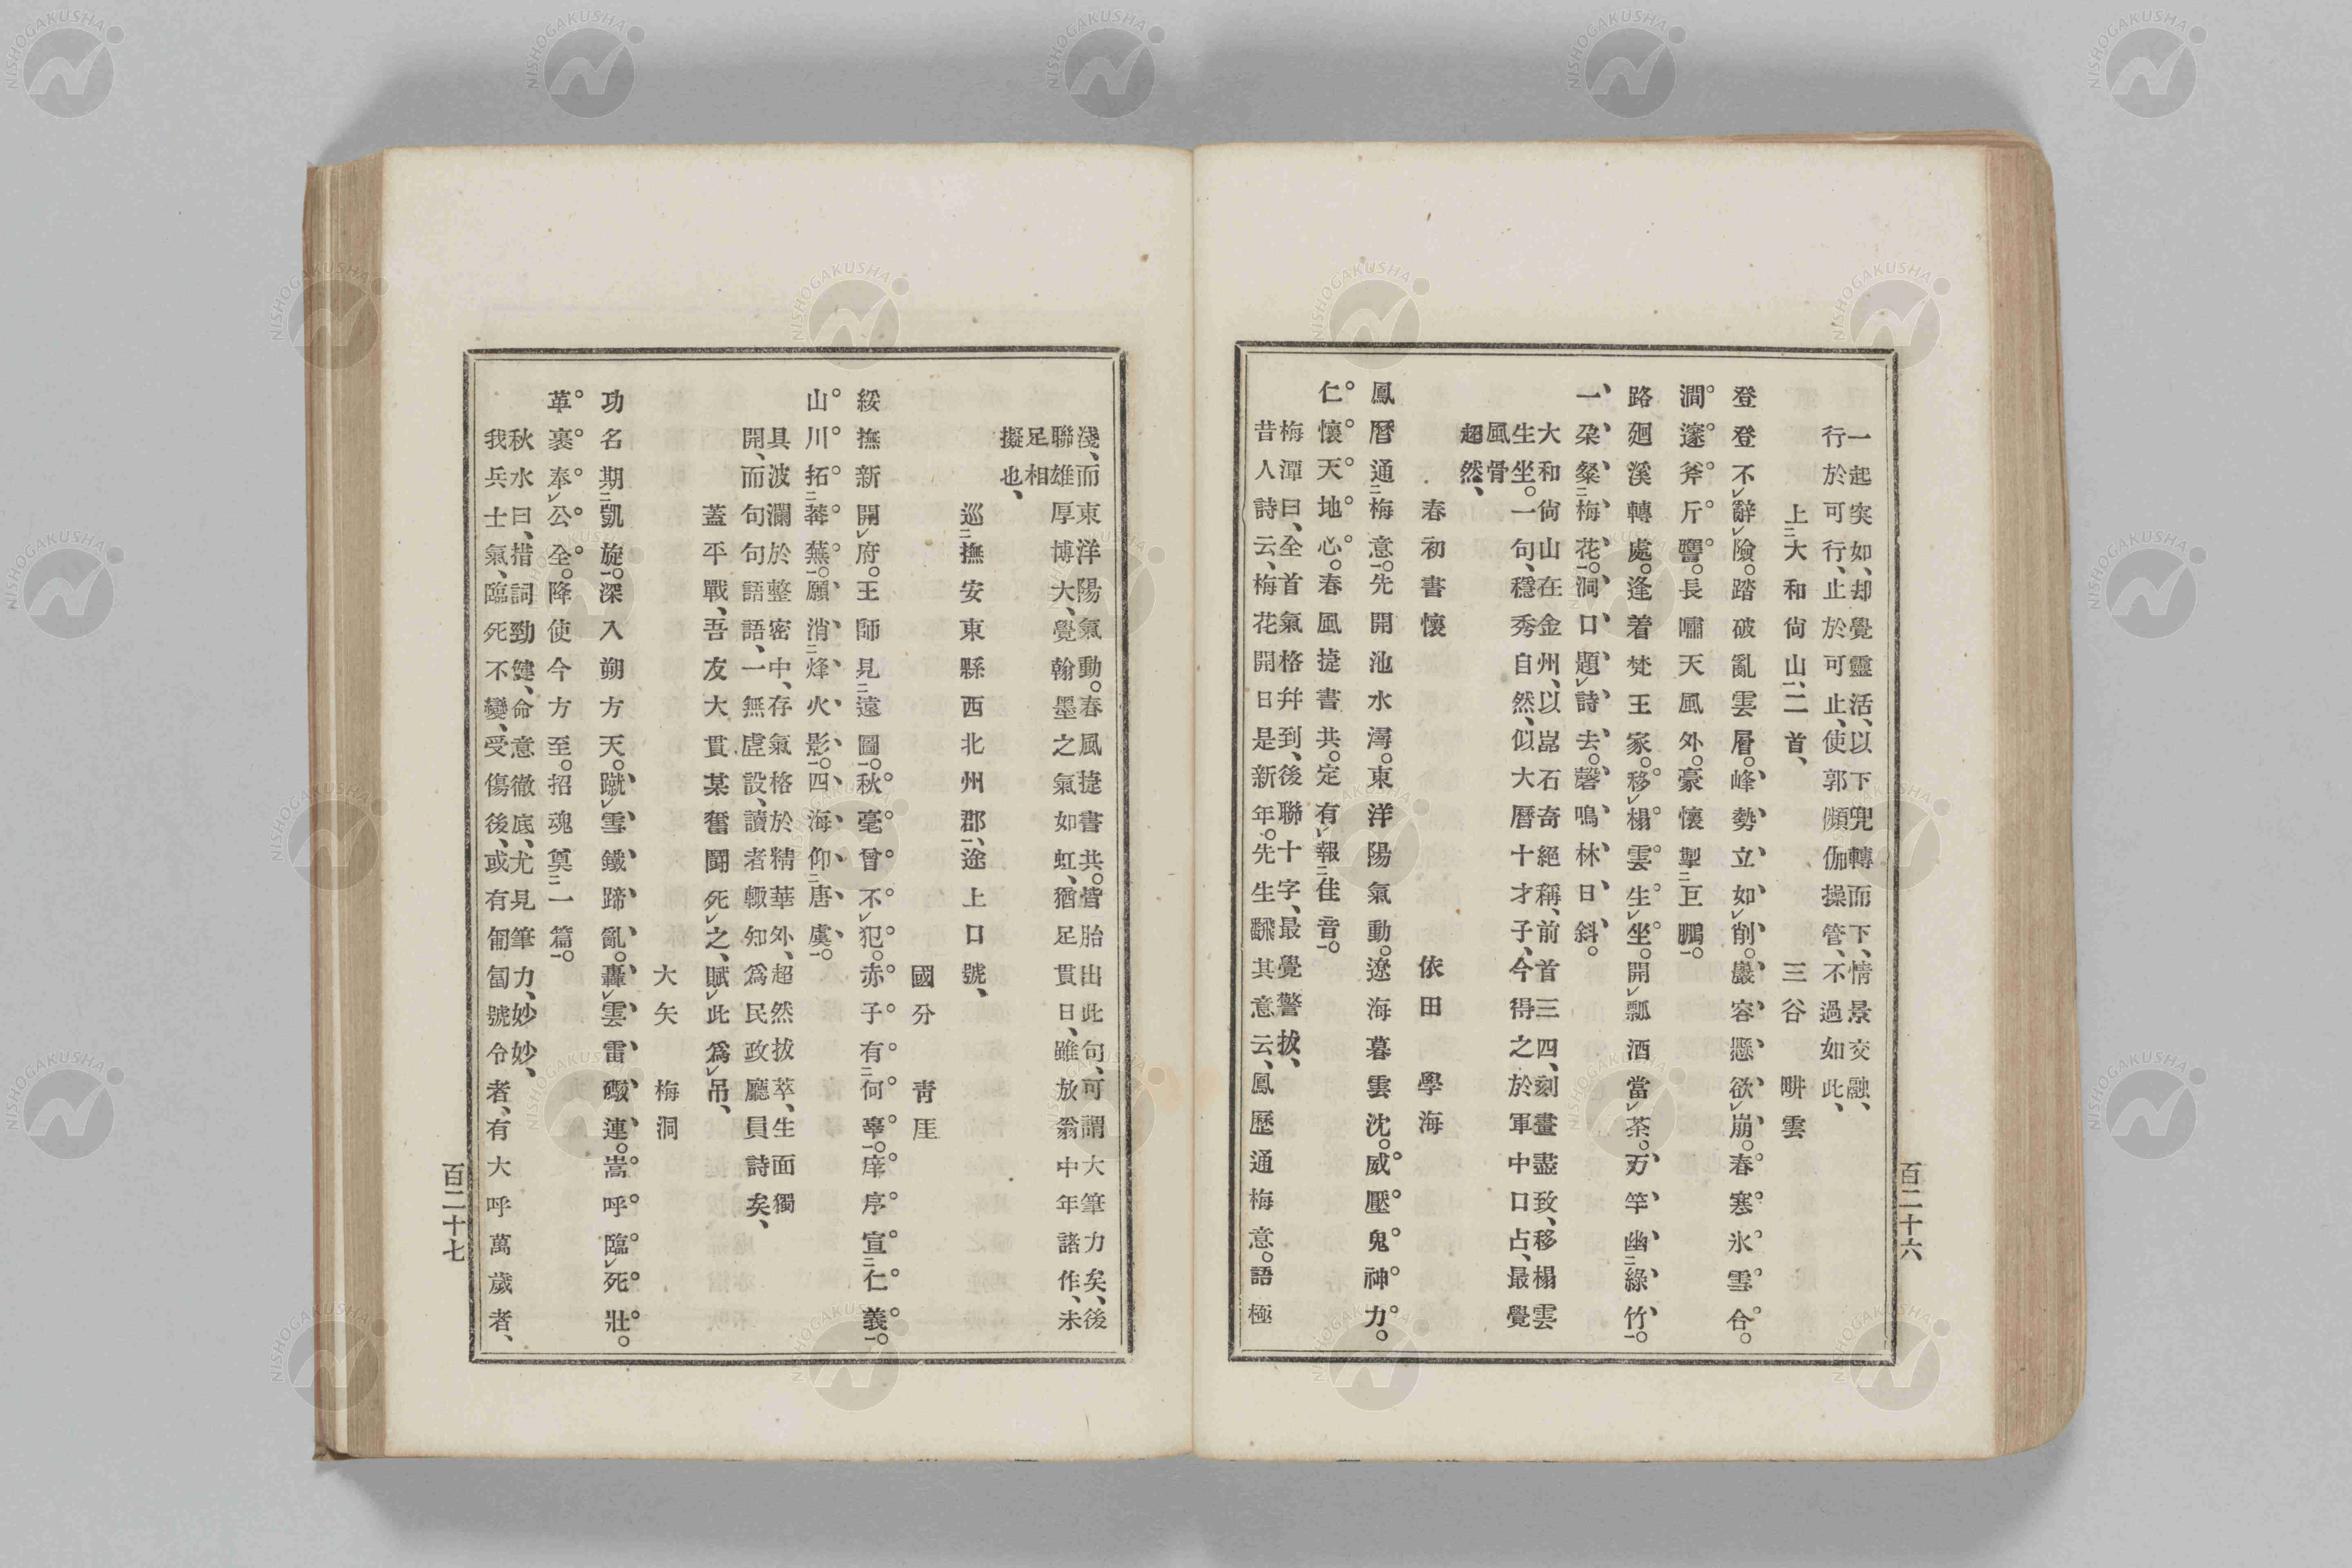 一起突如、却覺靈活、以下兜轉而下、情景交融、
行於可行、止於可止、使郭頻伽操管、不過如此、
上二大和尙山一、二首、
三谷畊雲
登登不レ辭レ險。踏破亂雲層。峰勢立如レ削。巖容懸欲レ崩。春寒氷雪合。
澗邃斧斤響。長嘯天風外。豪懷掣二巨鵬一。
路廻溪轉處。逢着梵王家。移レ榻雲生レ坐。開レ瓢酒當レ茶。万竿幽二綠竹一。
一朶粲二梅花一。洞口題レ詩去。磬鳴林日斜。
大和尙山在金州、以崑石奇絕稱、前首三四、刻畫盡致、移榻雲
生坐。一句、穩秀自然、似大曆十才子、今得之於軍中口占、最覺
風骨
超然、
春初書懷
依田學海
鳳曆通二梅意一。先開池水潯。東洋陽氣動。遼海暮雲沈。威壓鬼神力。
仁懷天地心。春風捷書共。定有レ報二佳音一。
梅潭曰、全首氣格幷到、後聯十字、最覺警拔、
昔人詩云、梅花開日是新年。先生飜其意云、鳳歷通梅意。語極
百二十六
淺、而東洋陽氣動。春風捷書共。皆胎出此句、可謂大筆力矣、後
聯雄厚博大、覺翰墨之氣如虹、猶足貫日、雖放翁中年諸作、未
足相
擬也、
巡二撫安東縣西北州郡一、途上口號、
國分靑厓
綏撫新開レ府。王師見二遠圖一。秋毫曾不レ犯。赤子有二何辜一。庠序宣二仁義一。
山川拓二蓁蕪一。願消二烽火影一。四海仰二唐虞一。
具波瀾於整密中、存氣格於精華外、超然拔萃、生面獨
開、而句句語語、一無虛設、讀者輙知爲民政廳員詩矣、
蓋平戰、吾友大貫某奮鬪死レ之、賦レ此爲レ吊、
大矢梅洞
功名期二凱旋一。深入朔方天。蹴レ雪鐵蹄亂。轟レ雲雷礮連。嵩呼臨レ死壯。
革裹奉レ公全。降使今方至。招魂奠二一篇一。
秋水曰、措詞勁健、命意徹底、尤見筆力、妙妙、
我兵士氣、臨死不變、受傷後、或有匍匐號令者、有大呼萬歲者、
百二十七